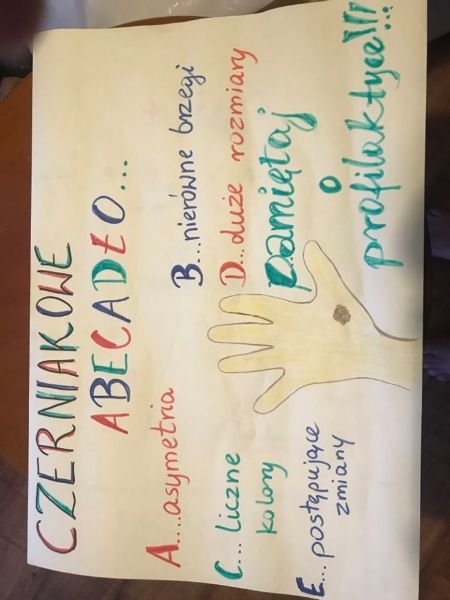 CZERNIAKOWE
ABECADŁO...
A....asymetria
B...nierówne brzegi
C... liczne
kolory
D...duże rozmiary
E... postępujące
zmiany
Pamiętaj
o
profilaktyce!!!